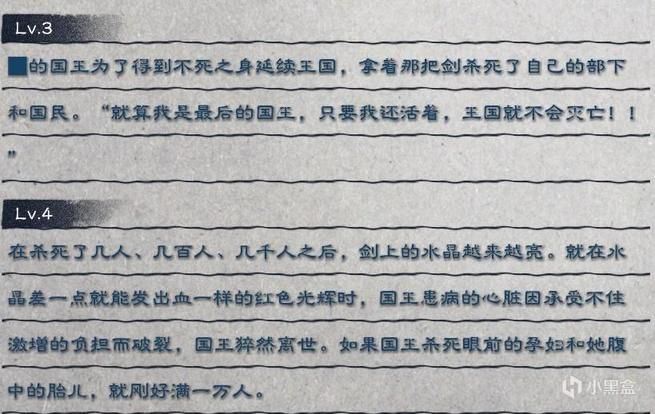 Lv.3
■的国王为了得到不死之身延续王国，拿着那把剑杀死了自己的部下
和国民。“就算我是最后的国王，只要我还活着，王国就不会灭亡！！
”
Lv.4
在杀死了几人、几百人、几千人之后，剑上的水晶越来越亮。就在水
晶差一点就能发出血一样的红色光辉时，国王患病的心脏因承受不住
激增的负担而破裂，国王猝然离世。如果国王杀死眼前的孕妇和她腹
中的胎儿，就刚好满一万人。
小黑盒